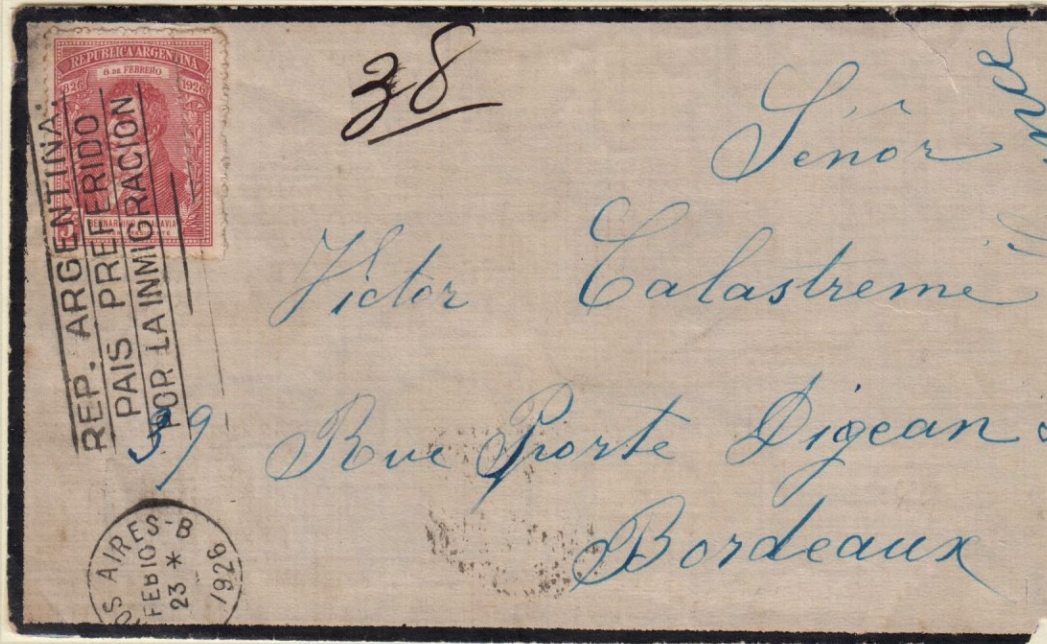 REPUBLICA ARGENTINA
8 DE FEBRERO
1826 1926
5
REP. ARGENTINA:
PAIS PREFERIDO
POR LA INMIGRACION
38
Señor
Victor Calastreme
39 Rue Porte Digean
Bordeaux
OS AIRES-B
FEB10
23 *
1926